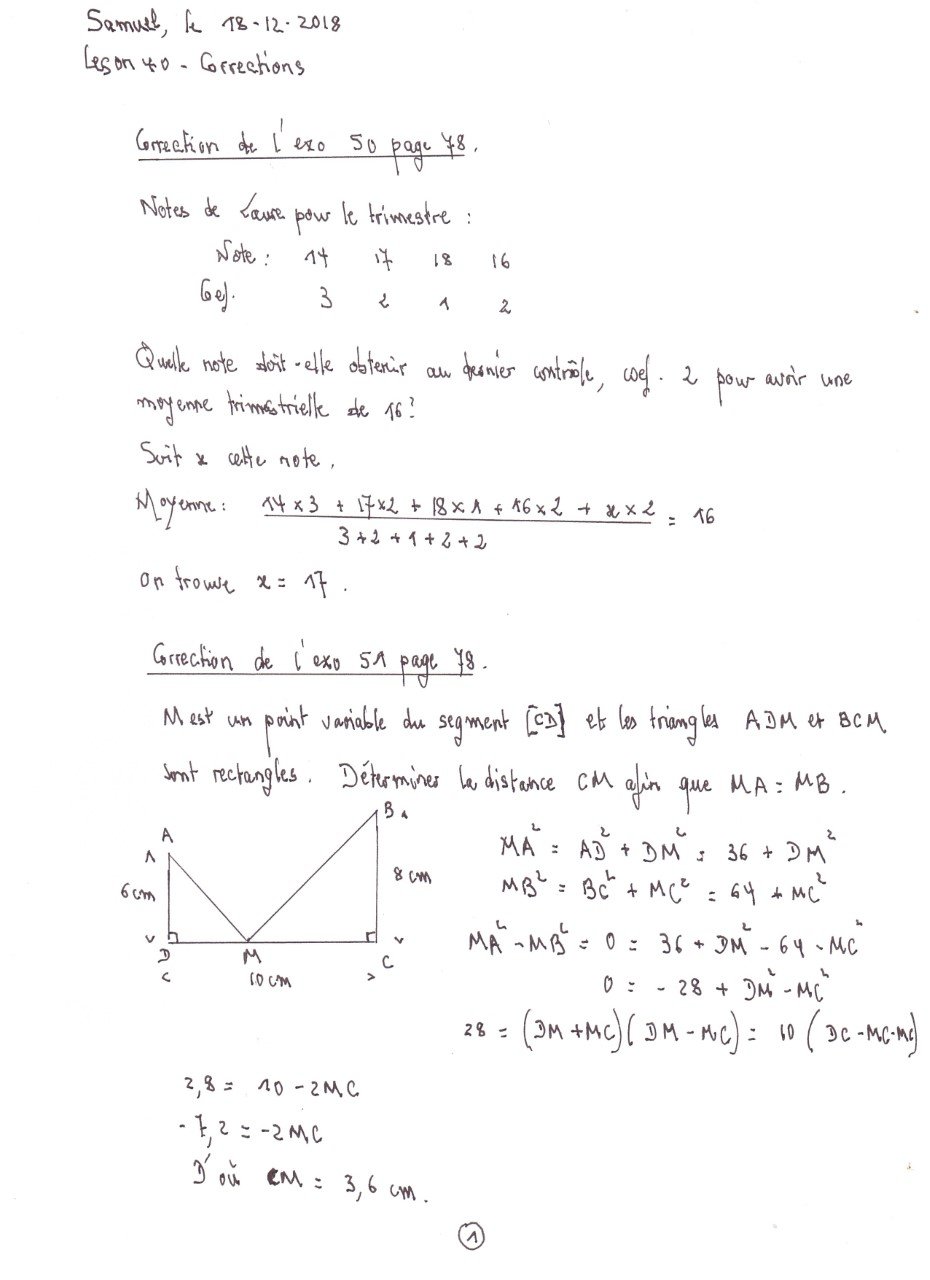 Samuel, le 18-12-2018
Leçon 40 - Corrections
Correction de l'exo 50 page 78.
Notes de Laure pour le trimestre :
Note : 14 17 18 16
Coef. 3 2 1 2
Quelle note doit-elle obtenir au dernier contrôle, coef. 2 pour avoir une
moyenne trimestrielle de 16?
Soit x cette note.
Moyenne : (14 × 3 + 17 × 2 + 18 × 1 + 16 × 2 + x × 2) / (3 + 2 + 1 + 2 + 2) = 16
on trouve x = 17.
Correction de l'exo 51 page 78.
M est un point variable du segment [CD] et les triangles ADM et BCM
sont rectangles. Déterminer la distance CM afin que MA = MB.
A
B
6 cm
8 cm
D
M
C
10 cm
MA² = AD² + DM² = 36 + DM²
MB² = BC² + MC² = 64 + MC²
MA² - MB² = 0 = 36 + DM² - 64 - MC²
0 = - 28 + DM² - MC²
28 = (DM + MC)(DM - MC) = 10 (DC - MC - MC)
2,8 = 10 - 2MC
-7,2 = -2MC
D'où CM = 3,6 cm.
1